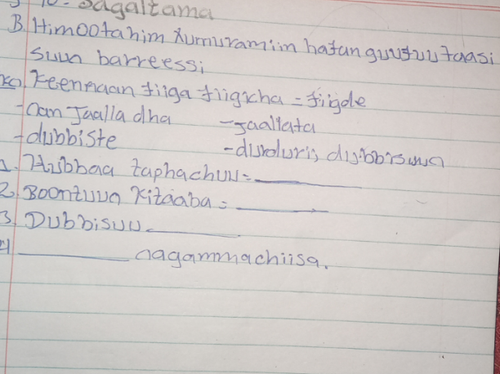 10. Sagaltama
B. Himootahim xumuramiin hafan guutuu taasi
suun barreessi
Keennaan fiiga fiigicha = fiigde
-Oan Jaalladha -Jaallata
-dubbiste -durduris dubbisuun
1. Hubbaa taphachuu = ______
2. Boontuun Kitaaba = ______
3. Dubbisuu. ______
4 ______ nagammachiisa.